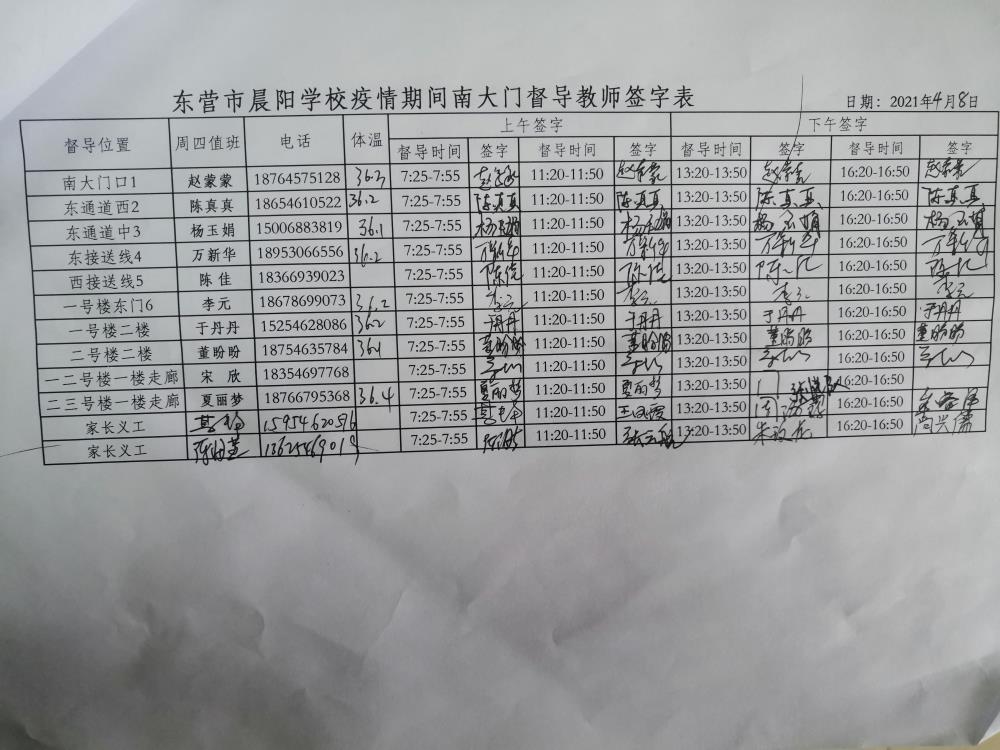 东营市晨阳学校疫情期间南大门督导教师签字表
日期：2021年4月8日
督导位置 周四值班 电话 体温 上午签字 下午签字
督导时间 签字 督导时间 签字 督导时间 签字 督导时间 签字
南大门口1 赵蒙蒙 18764575128 7:25-7:55 11:20-11:50 13:20-13:50 16:20-16:50
东通道西2 陈真真 18654610522 36.2 7:25-7:55 陈真真 11:20-11:50 陈真真 13:20-13:50 陈真真 16:20-16:50 陈真真
东通道中3 杨玉娟 15006883819 36.1 7:25-7:55 杨玉娟 11:20-11:50 杨玉娟 13:20-13:50 杨玉娟 16:20-16:50 杨玉娟
东接送线4 万新华 18953066556 36.2 7:25-7:55 万新华 11:20-11:50 万新华 13:20-13:50 万新华 16:20-16:50 万新华
西接送线5 陈佳 18366939023 7:25-7:55 11:20-11:50 13:20-13:50 16:20-16:50
一号楼东门6 李元 18678699073 36.2 7:25-7:55 李元 11:20-11:50 李元 13:20-13:50 李元 16:20-16:50 李元
一号楼二楼 于丹丹 15254628086 36.2 7:25-7:55 于丹丹 11:20-11:50 于丹丹 13:20-13:50 于丹丹 16:20-16:50 于丹丹
二号楼二楼 董盼盼 18754635784 36.1 7:25-7:55 董盼盼 11:20-11:50 董盼盼 13:20-13:50 董盼盼 16:20-16:50 董盼盼
一二号楼一楼走廊 宋欣 18354697768 7:25-7:55 11:20-11:50 13:20-13:50 16:20-16:50
二三号楼一楼走廊 夏丽梦 18766795368 36.4 7:25-7:55 夏丽梦 11:20-11:50 夏丽梦 13:20-13:50 16:20-16:50
家长义工 15954620596 7:25-7:55 11:20-11:50 13:20-13:50 16:20-16:50
家长义工 7:25-7:55 11:20-11:50 13:20-13:50 16:20-16:50